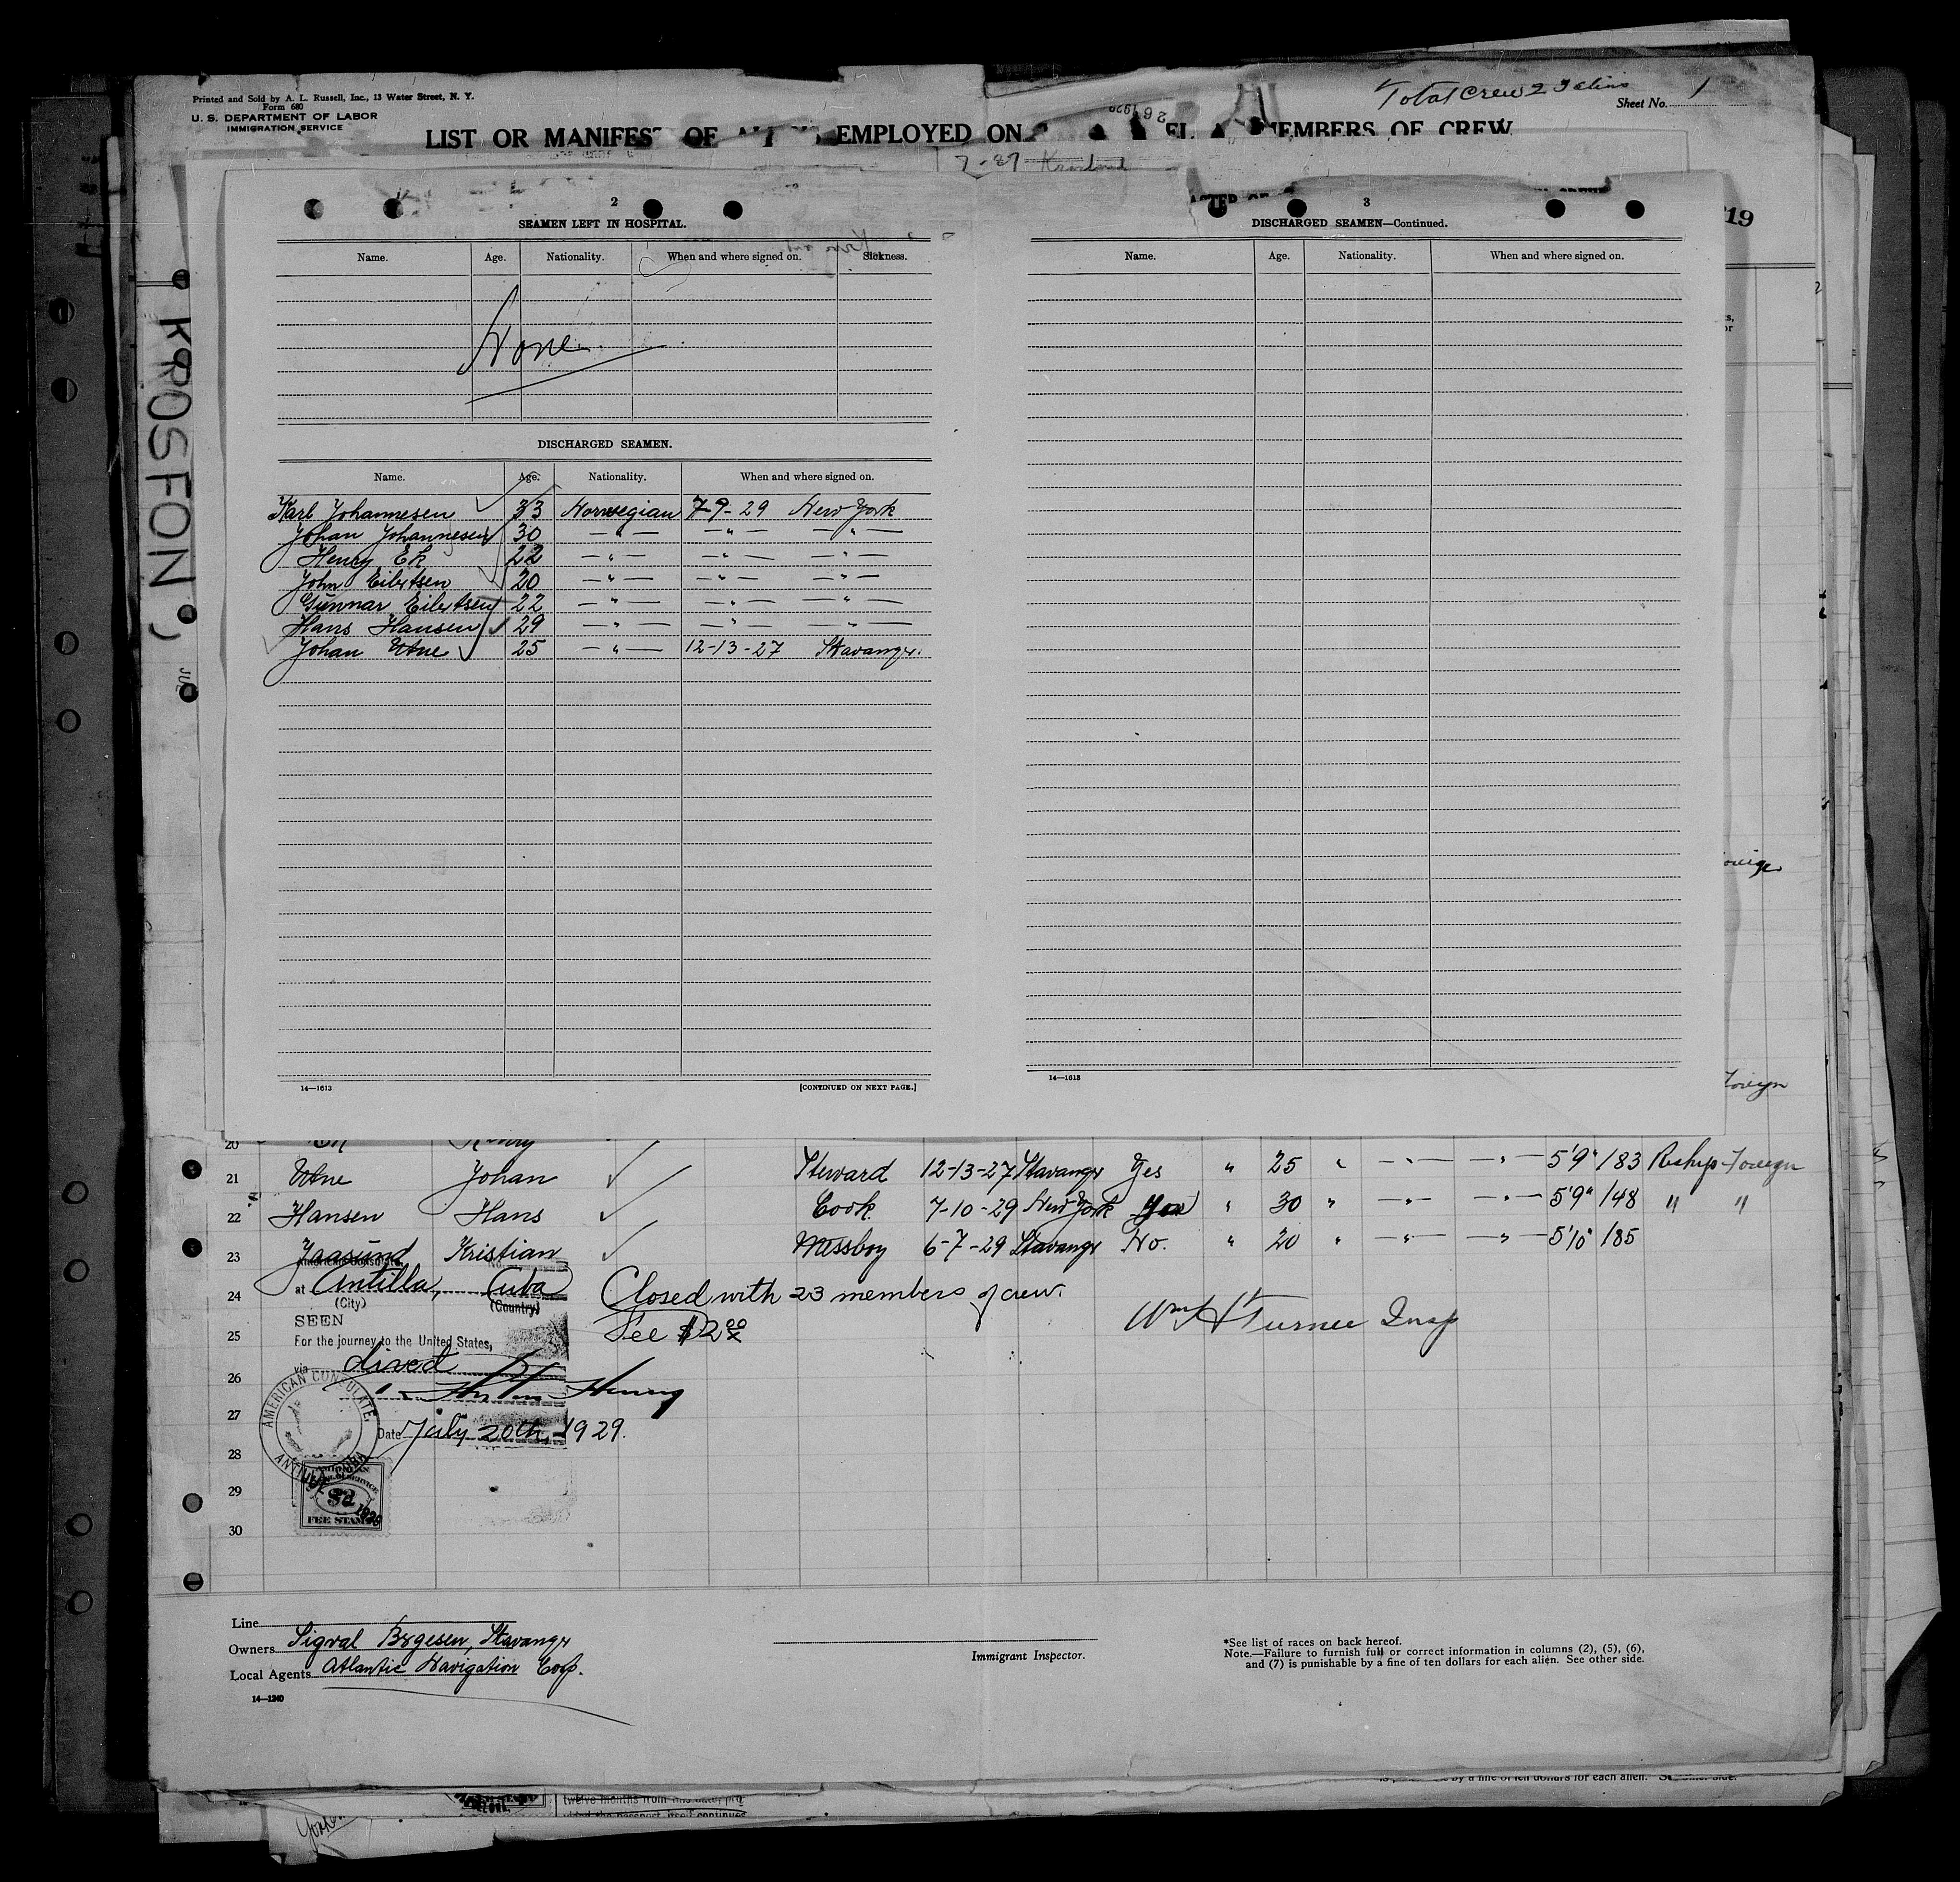 Printed and Sold by A. L. Russell, Inc., 13 Water Street, N. Y.
Form 680
U. S. DEPARTMENT OF LABOR
IMMIGRATION SERVICE
Total Crew 23 aliens
Sheet No. 1
LIST OR MANIFEST OF EMPLOYED ON MEMBERS OF CREW
KROSFOND
19
2
SEAMEN LEFT IN HOSPITAL.
Name. Age. Nationality. When and where signed on. Sickness.
None
DISCHARGED SEAMEN.
Name. Age. Nationality. When and where signed on.
Karl Johannesen 33 Norwegian 7-9-29 New York
Johan Johannesen 30 —"— —"— —"—
Henry Ek 22 —"— —"— —"—
John Eilertsen 20 —"— —"— —"—
Gunnar Eilertsen 22 —"— —"— —"—
Hans Hansen 29 —"— —"— —"—
Johan Utne 25 —"— 12-13-27 Stavanger.
14—1613 [CONTINUED ON NEXT PAGE.]
3
DISCHARGED SEAMEN—Continued.
Name. Age. Nationality. When and where signed on.
14—1613
Foreign
20 Ek Henry
21 Utne Johan Steward 12-13-27 Stavanger Yes " 25 " —"— —"— 5'9" 183 Reship Foreign
22 Hansen Hans Cook 7-10-29 New York Yes " 30 " —"— —"— 5'9" 148 " "
23 Jaasund Kristian Messboy 6-7-29 Stavanger No. " 20 " —"— —"— 5'10" 185
American Consulate
24 at Antilla, Cuba Closed with 23 members of crew.
(City) (Country)
SEEN
25 For the journey to the United States, Fee $2.00 Wm H Turner Insp
via direct
26
Henry
27 Date July 20th, 1929.
AMERICAN CONSULATE, ANTILLA, CUBA
28
29
30
FEE STAMP
Line
Owners Sigval Bergesen, Stavanger
Local Agents Atlantic Navigation Corp.
14—1240
Immigrant Inspector.
*See list of races on back hereof.
Note.—Failure to furnish full or correct information in columns (2), (5), (6),
and (7) is punishable by a fine of ten dollars for each alien. See other side.
by a fine of ten dollars for each alien.
twelve months from this date